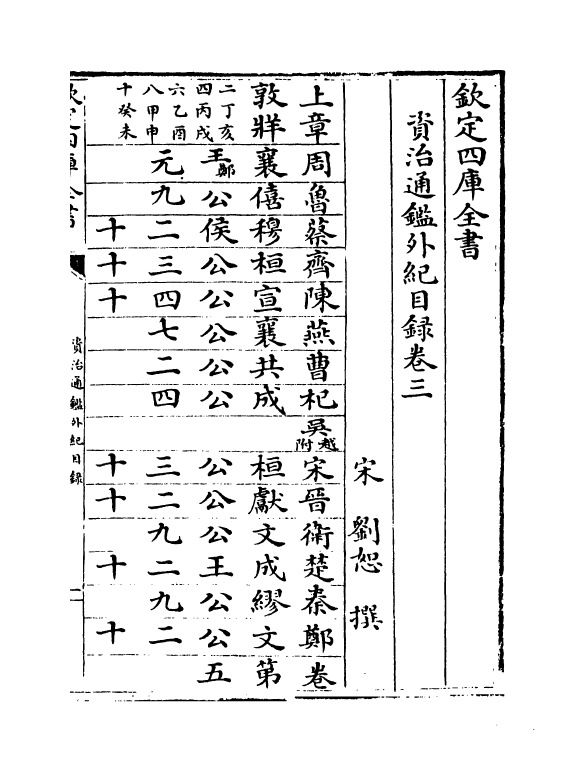 欽定四庫全書
資治通鑑外紀目録卷三
宋 劉恕 撰
上章周魯蔡齊陳燕曹杞吳越附宋晉衛楚秦鄭卷
敦牂襄僖穆桓宣襄共成 桓獻文成繆文第
二丁亥
四丙戌
六乙酉
八甲申
十癸未
王鄭公侯公公公公公 公公公王公公五
元九二三四七二四 三二九二九二
十十十 十十 十 十
欽定四庫全書
資治通鑑外紀目録
一